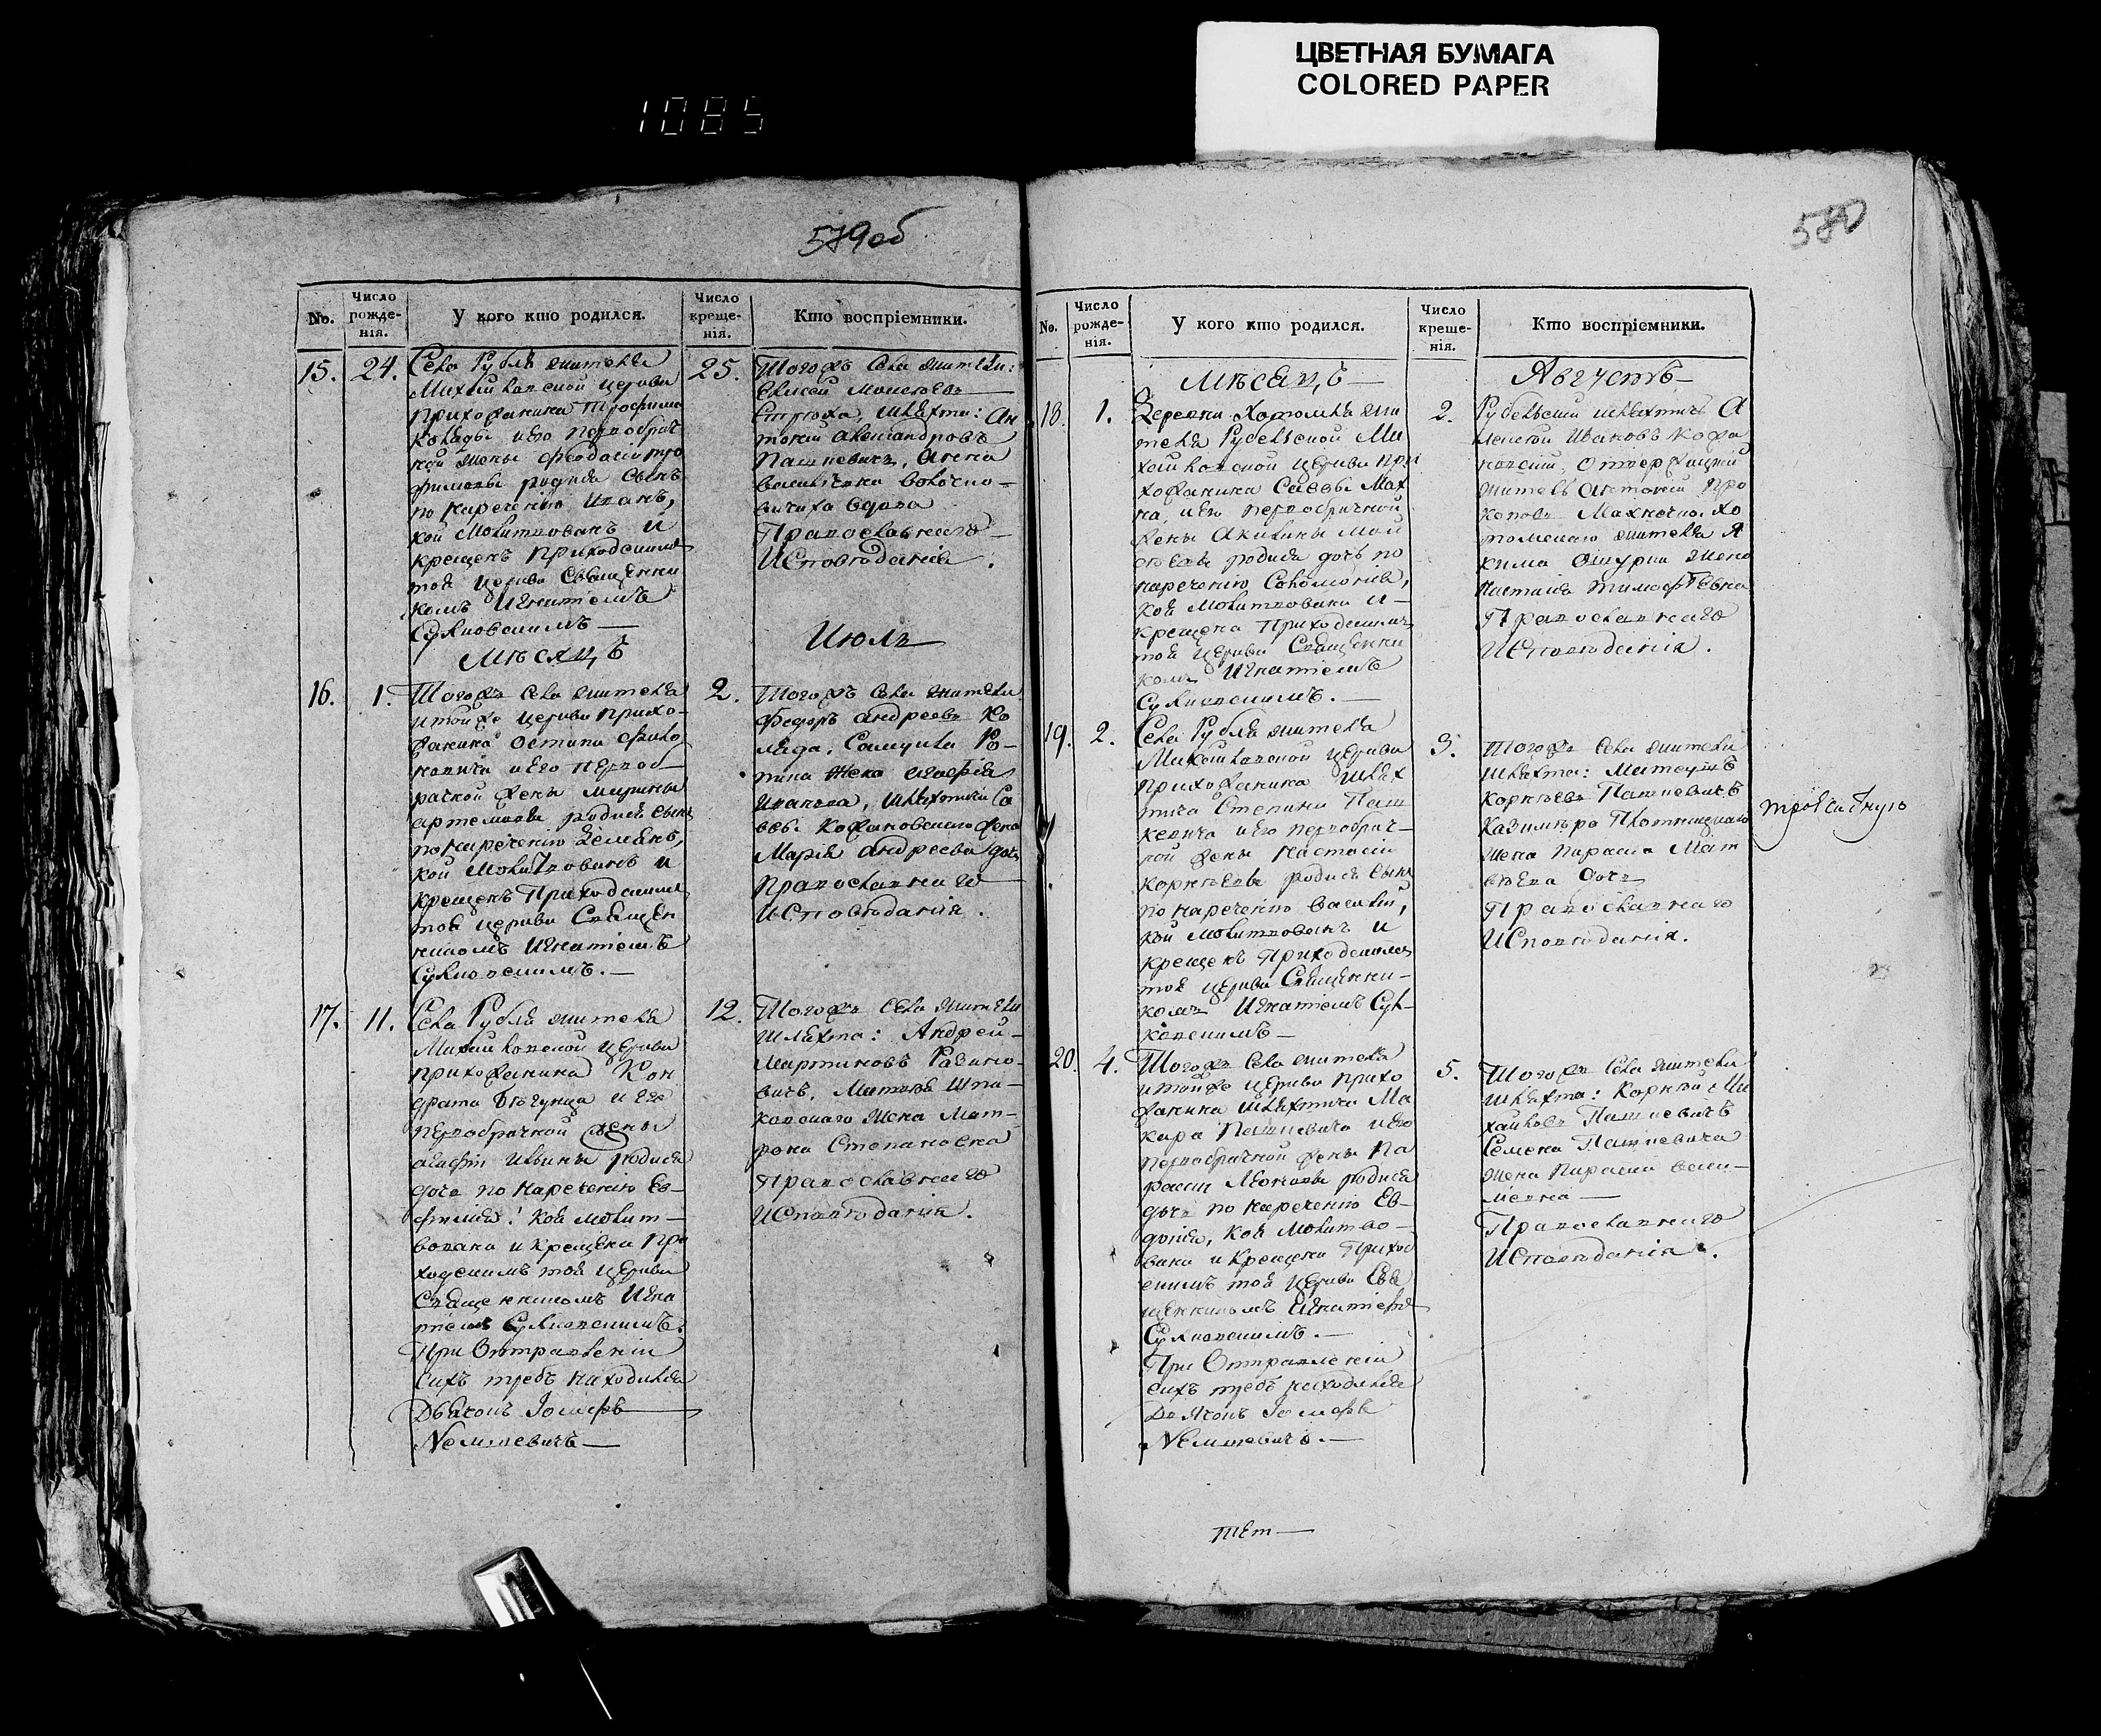 ЦВЕТНАЯ БУМАГА
COLORED PAPER
1085
579об
No.
Число рожде-нія.
У кого кто родился.
Число креще-нія.
Кто воспріемники.
15. 24.
Села Рубля жителя
Михайловской церкви
прихожанина Трофима
Коляды и его первобрач
ной жены Феодосіи тро
фимовы родился сынъ
по нареченію Иванъ,
кой молитвованъ и
крещенъ Приходскимъ
той церкви Священни
комъ Игнатіемъ
Сулковскимъ
25.
Тогожъ села жители:
Елисей Моисеевъ
шляхта: Ан
тоній Александровъ
Пашкевичъ,
вдова
Православнаго
Исповѣданія.
Мѣсяцъ
Июль
16. 1.
Тогожъ села жителя
и той же церкви прихо
жанина Остапа
и его первоб
рачной жены Марины
Артемовы родился сынъ
по нареченію
кой молитвованъ и
крещенъ Приходскимъ
той церкви Священ
никомъ Игнатіемъ
Сулковскимъ.
2.
Тогожъ села жители
Федоръ Андреевъ Ко
ляда, Самуила
жена Агафія
Иванова, шляхтича Са
вы Кожановскаго жена
Марія Андреева дочь
Православнаго
Исповѣданія.
17. 11.
Села Рубля жителя
Михайловской церкви
прихожанина Кон
драта и его
первобрачной жены
Агафіи Ильины родися
дочь по нареченію Ев-
фимія: коя молит-
вована и крещена При
ходскимъ той церкви
Священникомъ Игна
тіемъ Сулковскимъ.
При Отправленіи
сихъ требъ находился
Дьячокъ Іосифъ
Немшевичъ
12.
Тогожъ села жители
шляхта: Андрей
Мартиновъ
вичъ, Матвея Шпа-
ковскаго жена Мат-
рона Степановна
Православнаго
Исповѣданія.
580
No.
Число рожде-нія.
У кого кто родился.
Число креще-нія.
Кто воспріемники.
Мѣсяцъ
Августъ
18. 1.
Деревни Хотомля жи
теля Рубельской Ми
хайловской церкви при
хожанина Саввы Мах
на, и его первобрачной
жены Акилины Мои
сѣевы родися дочь по
нареченію Соломонія,
коя молитвована и
крещена Приходскимъ
той церкви Священни
комъ Игнатіемъ
Сулковскимъ.
2.
Рубельскій шляхтичъ А
лексѣй Ивановъ Кожа
новскій,
житель Антоній Про
коповъ Хо
томскаго жителя Я
кима жена
Настасія Тимофѣевна
Православнаго
Исповѣданія.
19. 2.
Села Рубля жителя
Михайловской церкви
прихожанина шлях
тича Степана Паш
кевича и его первобрач-
ной жены Настасіи
Корнѣевы родися сынъ
по нареченію Василій,
кой молитвованъ и
крещенъ Приходскимъ
той церкви Священни-
комъ Игнатіемъ Сул-
ковскимъ
3.
Тогожъ села жители
шляхта:
Корнѣевъ Пашкевичъ
Казимѣра Плотницкаго
жена Парасія Мат
вѣева дочь
Православнаго
Исповѣданія.
20. 4.
Тогожъ села жителя
и той же церкви прихо
жанина шляхтича Ма
кара Пашкевича и его
первобрачной жены Па
расіи родися
дочь по нареченію Ев-
докія, коя молитво-
вана и крещена Приход
скимъ той церкви Свя
щенникомъ Игнатіемъ
Сулковскимъ.
При Отправленіи
сихъ требъ находился
Дьячокъ Іосифъ
Немшевичъ.
5.
Тогожъ села жители
шляхта: Корній Ми
хайловъ Пашкевичъ
Семена Пашкевича
жена Парасія Васи-
левна
Православнаго
Исповѣданія.